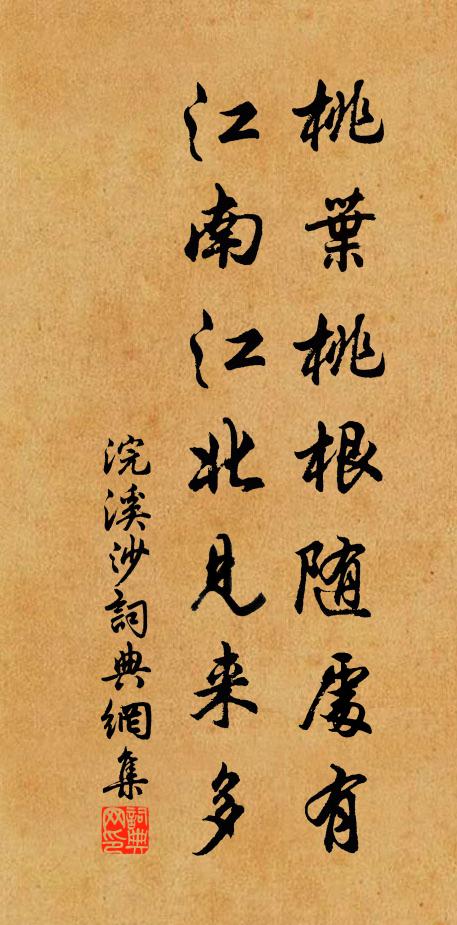 桃葉桃根随處有
江南江北見来多
浣溪沙詞典網集
詞典网印